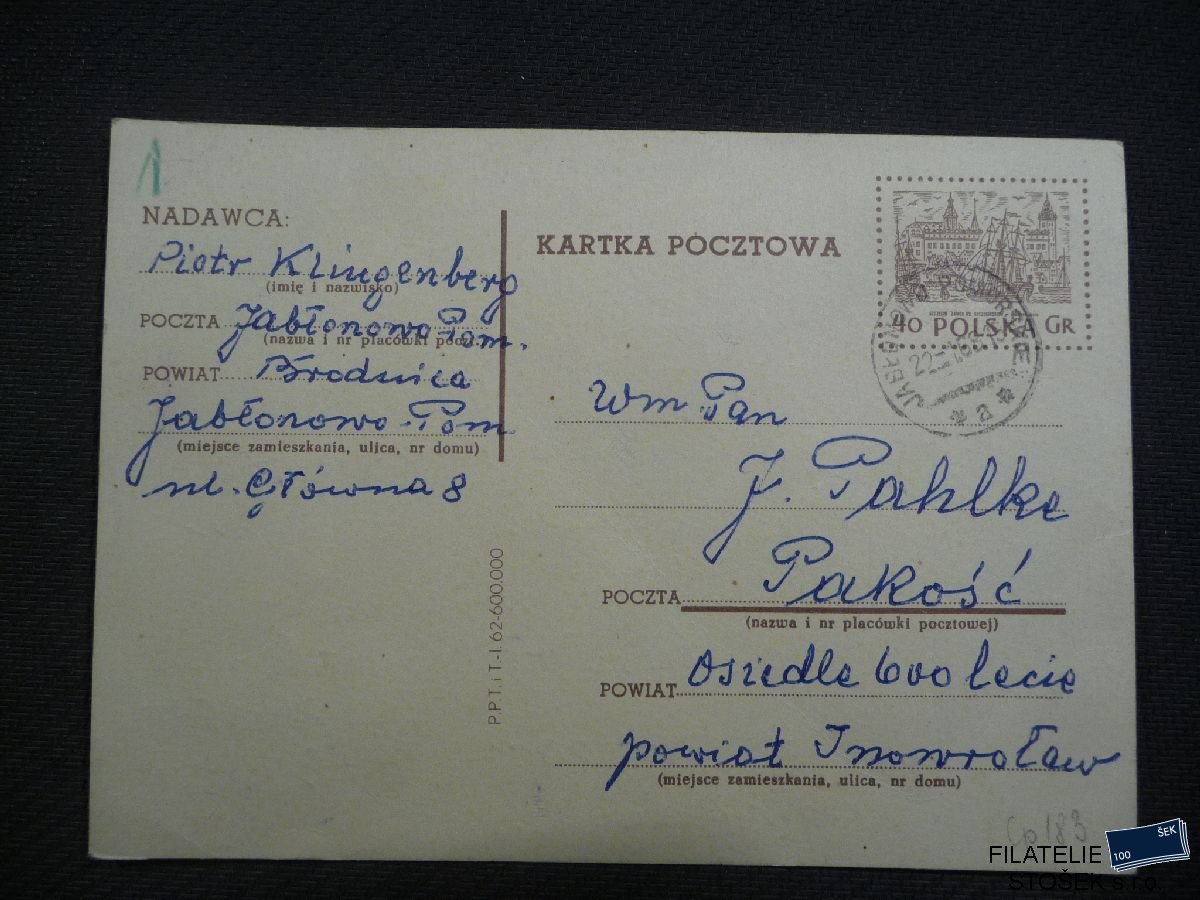 1
NADAWCA:
Piotr Klingenberg
(imię i nazwisko)
POCZTA Jabłonowo Pom.
(nazwa i nr placówki poczt.
POWIAT Brodnica
Jabłonowo-Pom
(miejsce zamieszkania, ulica, nr domu)
ul. Główna 8
KARTKA POCZTOWA
40 POLSKA GR
JABŁONOWO POMORSKIE
22
a
Wm Pan
J. Pahlke
POCZTA Pakość
(nazwa i nr placówki pocztowej)
POWIAT Osiedle 600 lecie
powiat Inowrocław
(miejsce zamieszkania, ulica, nr domu)
P.P.T. i T.-I. 62-600.000
Cp 183
FILATELIE
STOŠEK s.r.o.
100 ŠEK